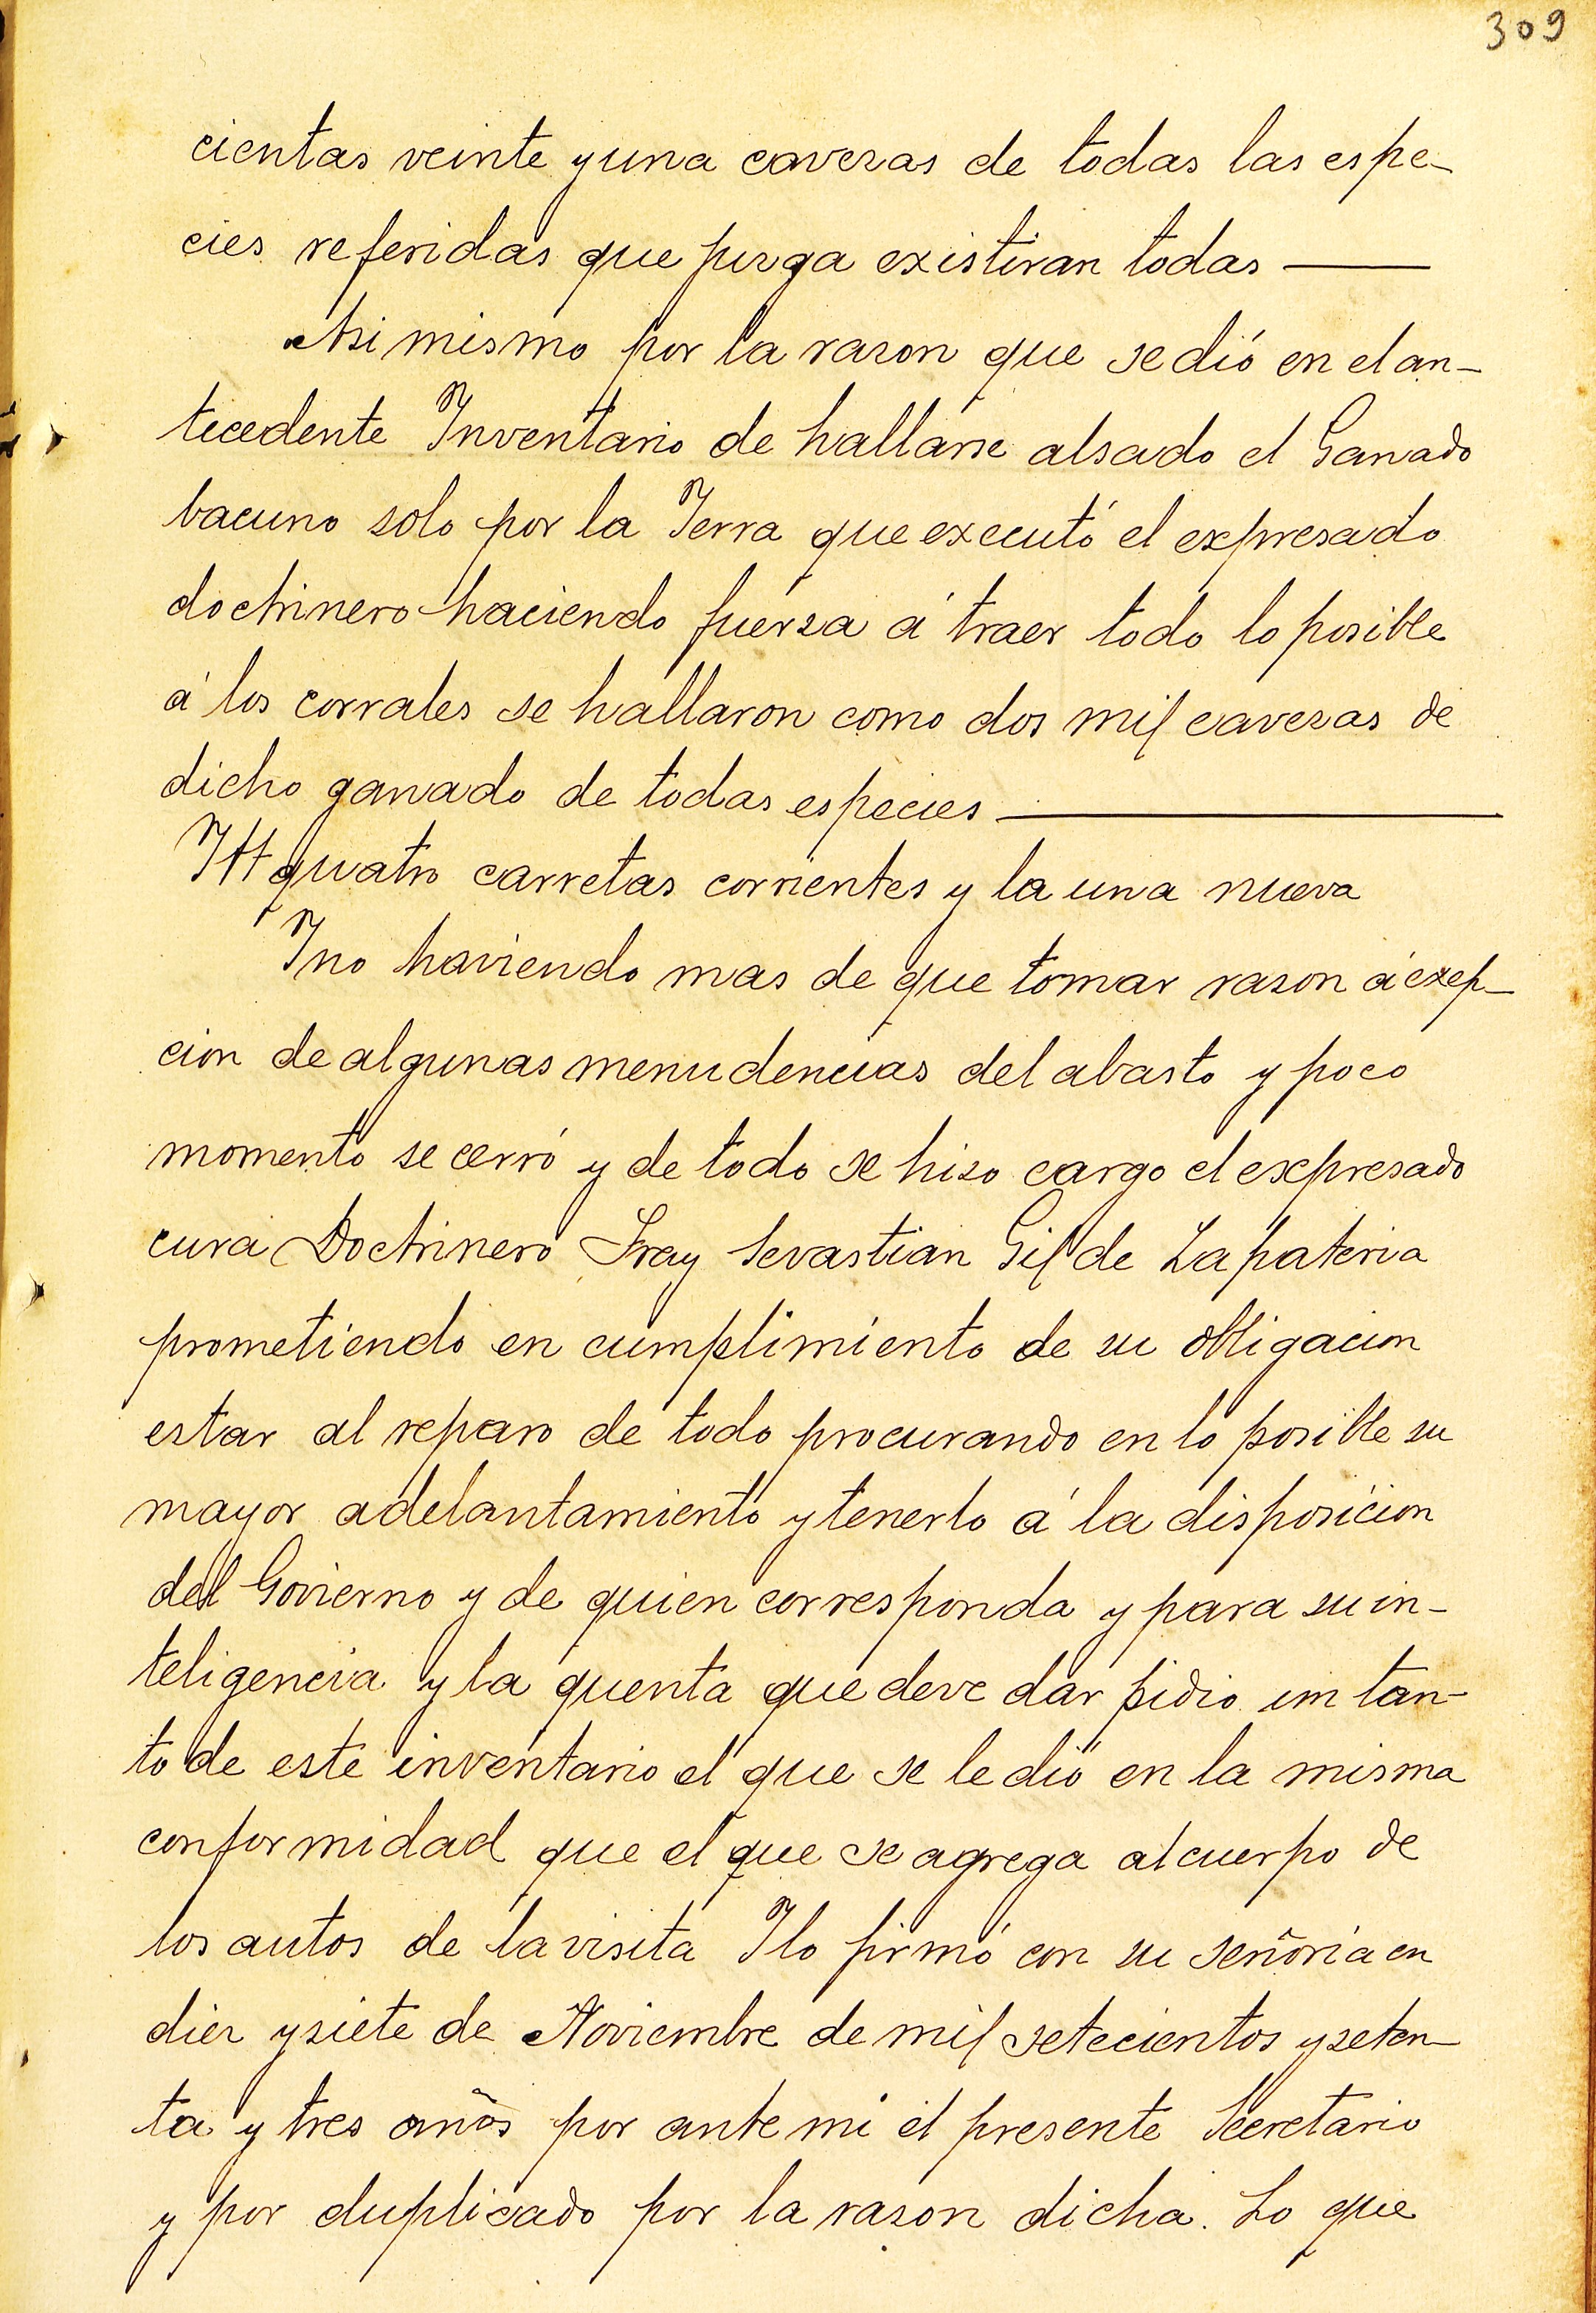 309
cientas veinte y una cavezas de todas las espe-
cies referidas que juzga existiran todas —
Asi mismo por la razon que se dió en el an-
tecedente Inventario de hallarse alsado el Ganado
bacuno solo por la Ierra que executó el expresado
doctrinero haciendo fuerza á traer todo lo posible
á los corrales se hallaron como dos mil cavezas de
dicho ganado de todas especies —
Itt quatro carretas corrientes y la una nueva
Y no haviendo mas de que tomar razon á exep-
cion de algunas menudencias del abasto y poco
momento se cerró y de todo se hizo cargo el expresado
cura Doctrinero Fray Sevastian Gil de Lapateria
prometiendo en cumplimiento de su obligacion
estar al reparo de todo procurando en lo posible su
mayor adelantamiento y tenerlo á la disposicion
del Govierno y de quien corresponda y para su in-
teligencia y la quenta que deve dar pidio un tan-
to de este inventario el que se le dió en la misma
conformidad que el que se agrega al cuerpo de
los autos de la visita Y lo firmó con su señoria en
diez y siete de Noviembre de mil setecientos y seten-
ta y tres años por ante mi el presente Secretario
y por duplicado por la razon dicha. Lo que